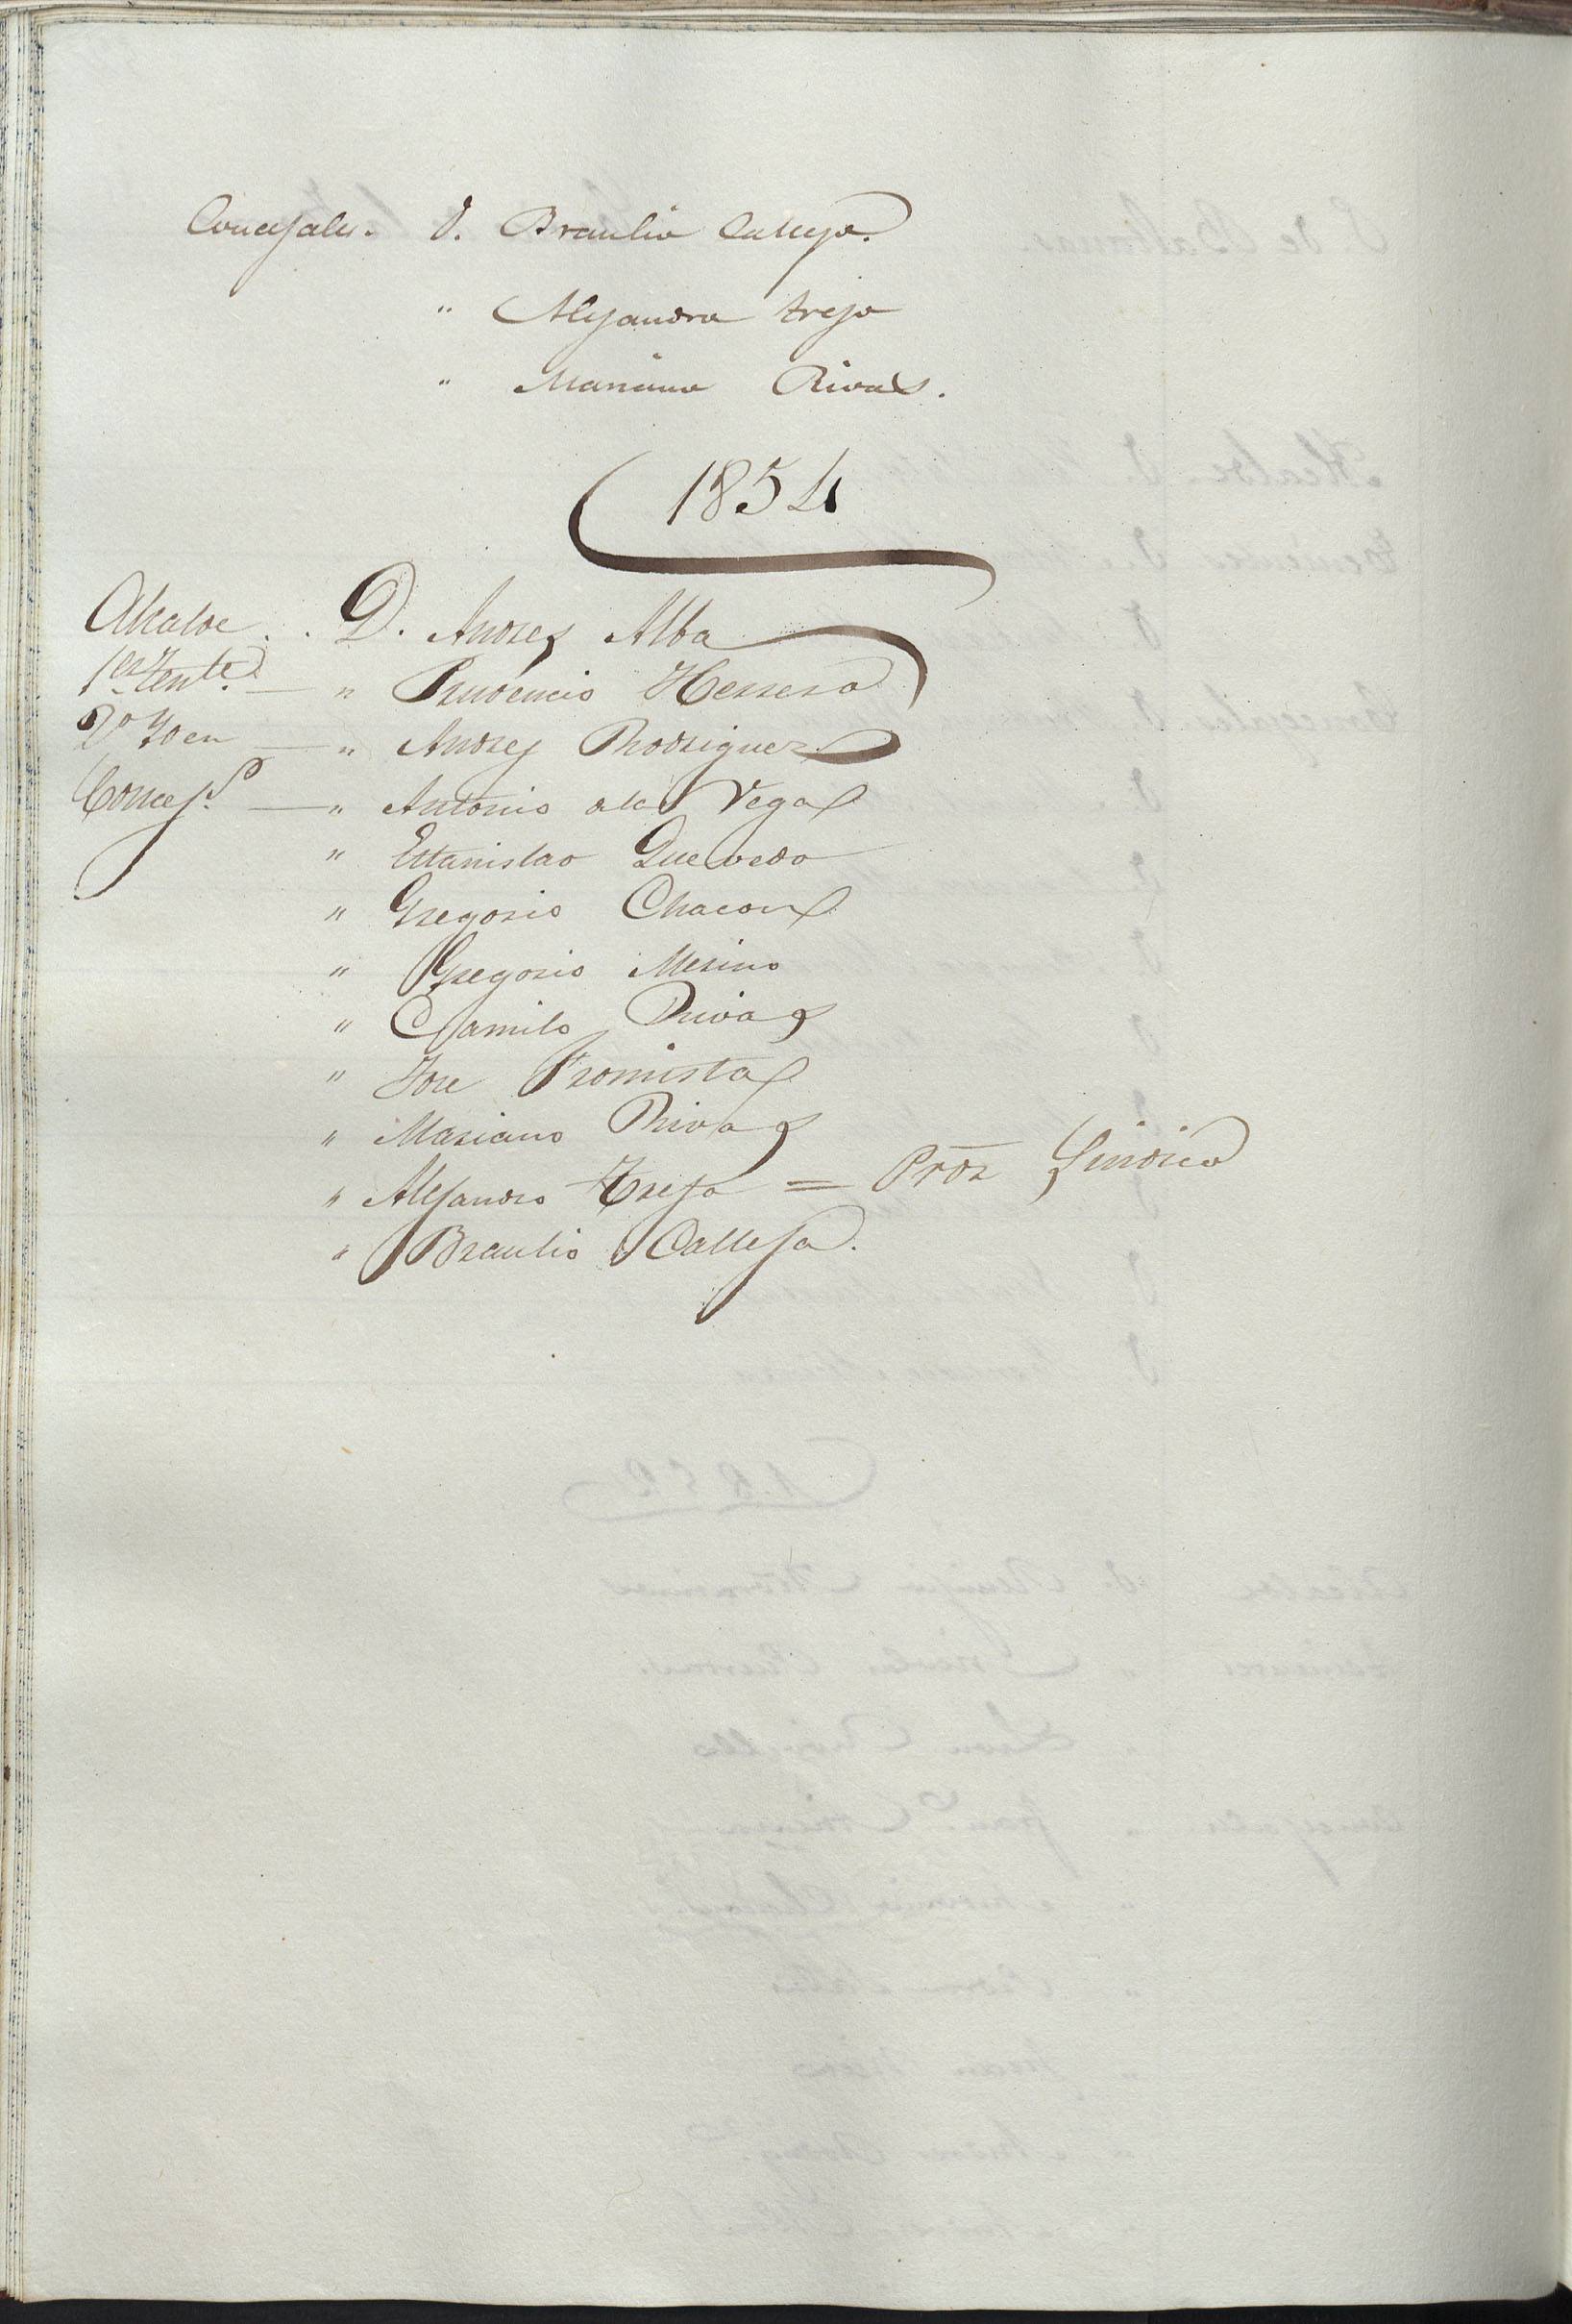 Concejales. D. Braulio Calleja.
" Alejandro trejo
" Mariano Rivas.
1854
Alcalde . . D. Andres Alba
1er Tente. — " Prudencio Herrera
2º Yden — " Andres Rodriguez
Concejs. — " Antonio dela Vega
" Estanislao Quevedo
" Gregorio Chacon
" Gregorio Merino
" Camilo Rivas
" Jose Fromista
" Mariano Rivas
" Alejandro Trejo = Prdr Sindico
" Braulio Calleja.